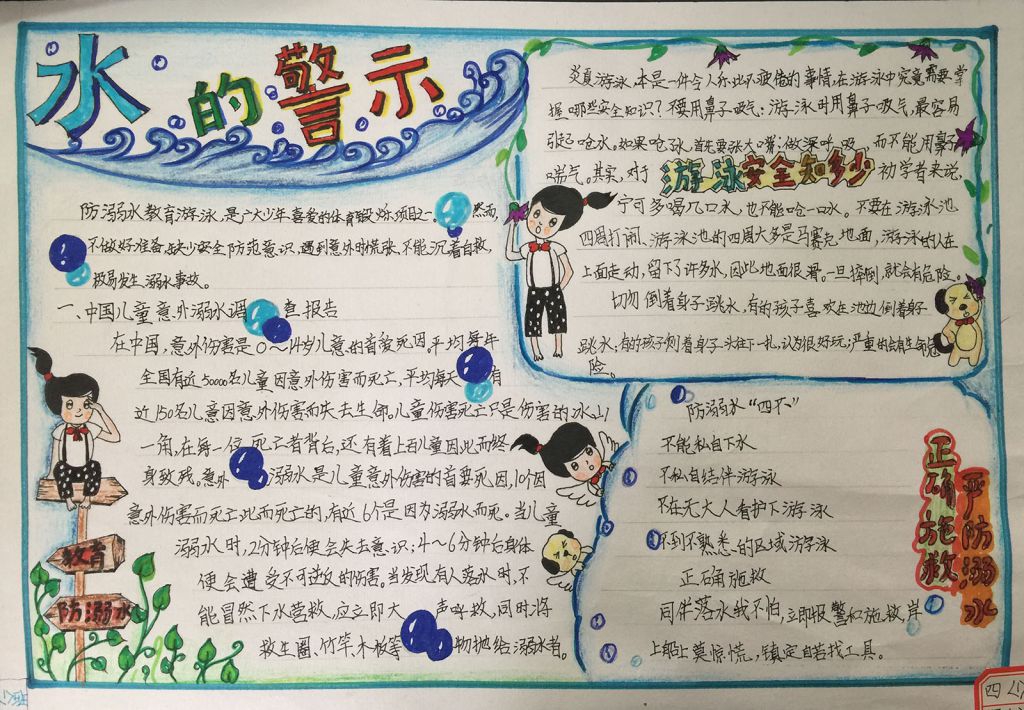 水的警示
防溺水教育游泳,是广大少年喜爱的体育锻炼项目之一。然而,
不做好准备、缺少安全防范意识,遇到意外时慌张、不能沉着自救,
极易发生溺水事故。
一、中国儿童意外溺水调查报告
在中国,意外伤害是0~14岁儿童的首要死因。平均每年
全国有近50000名儿童因意外伤害而死亡,平均每天有
近150名儿童因意外伤害而失去生命。儿童伤害死亡只是伤害的冰山
一角,在每一位死亡者背后,还有着上百儿童因此而终
身致残。意外溺水是儿童意外伤害的首要死因,10个因
意外伤害而死亡而死亡的,有近6个是因为溺水而死。当儿童
溺水时,2分钟后便会失去意识;4~6分钟后身体
便会遭受不可逆反的伤害。当发现有人落水时,不
能冒然下水营救,应立即大声呼救,同时将
救生圈、竹竿、木板等物抛给溺水者。
教育
防溺水
炎夏游泳,本是一件令人乐此不疲倦的事情,在游泳中究竟需要掌
握哪些安全知识?不要用鼻子吸气:游泳时用鼻子吸气,最容易
引起呛水。如果呛水,首先要张大嘴;做深呼吸,而不能用鼻子
喘气。其实,对于初学者来说,
游泳安全知多少
宁可多喝几口水,也不能呛一口水。不要在游泳池
四周打闹、游泳池的四周大多是马赛克地面,游泳的人在
上面走动,留下了许多水,因此地面很滑。一旦摔倒,就会有危险。
切勿倒着身子跳水,有的孩子喜欢在池边倒着身子
跳水;有的孩子倒着身子头往下一扎,认为很好玩;严重的会有生命危
险。
防溺水“四不”
不能私自下水
不私自结伴游泳
不在无大人看护下游泳
不到不熟悉的区域游泳
正确施救
同伴落水我不怕,立即报警和施救,岸
上船上莫惊慌,镇定自若找工具。
正确施救
严防溺水
班
四(1)